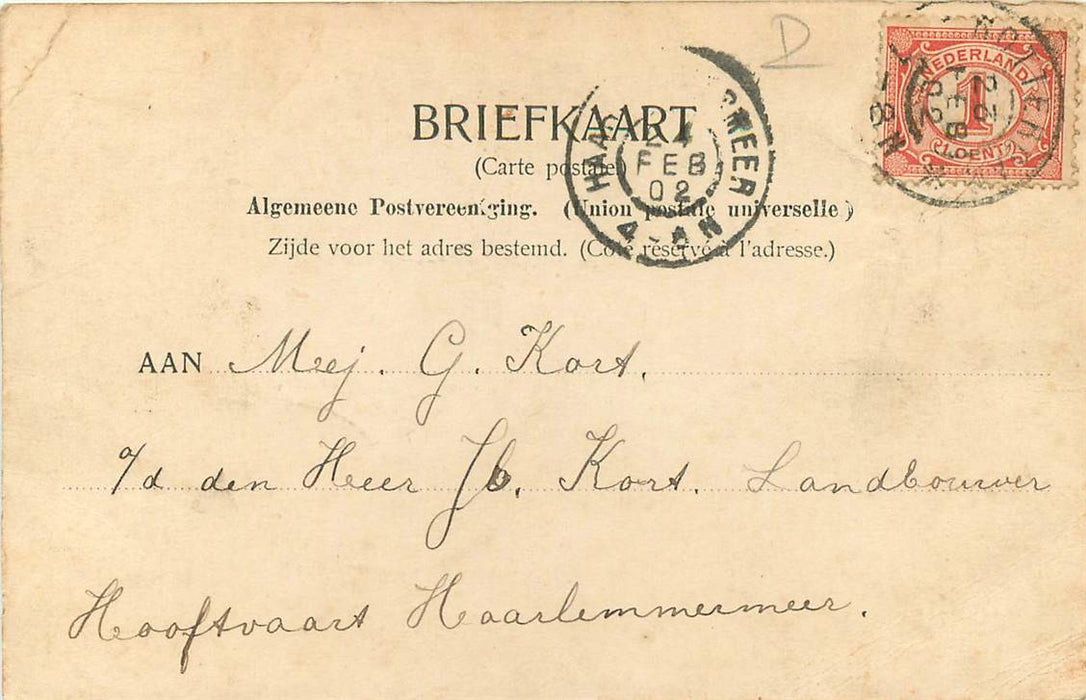 D
BRIEFKAART
(Carte postale)
Algemeene Postvereeniging. (Union postale universelle)
Zijde voor het adres bestemd. (Côté réservé à l'adresse.)
NEDERLAND
1
CENT
FEB
02
8-
HAA MEER
24
FEB
02
4-8N
AAN Mej. G. Kort.
a/d den Heer Jb. Kort. Landbouwer
Hooftvaart Haarlemmermeer.